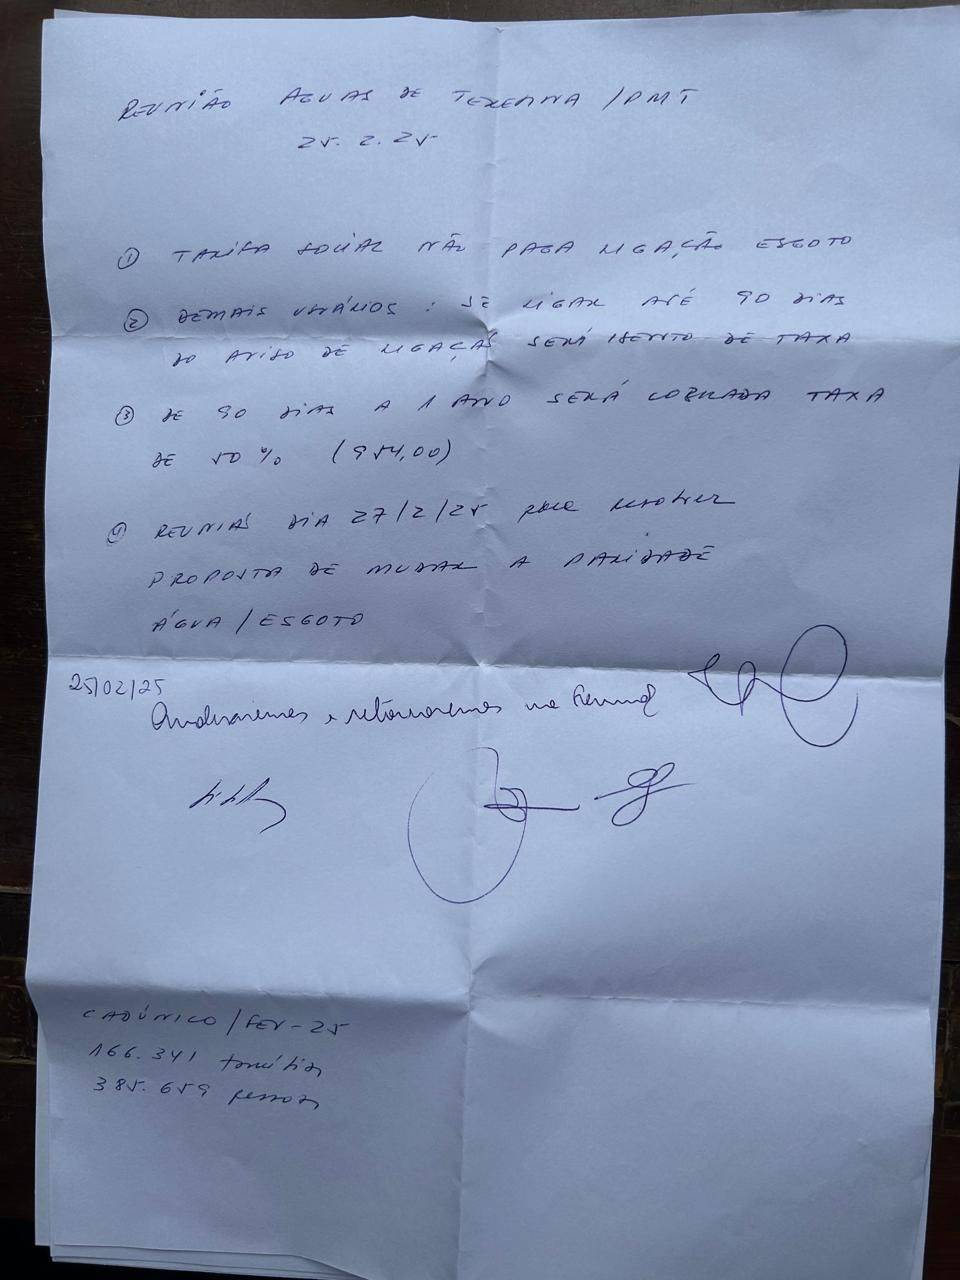 REUNIÃO AGUAS DE TERESINA / PMT
25.2.25
① TARIFA SOCIAL NÃO PAGA LIGAÇÃO ESGOTO
② DEMAIS USUÁRIOS : SE LIGAR ATÉ 90 DIAS
DO AVISO DE LIGAÇÃO SERÁ ISENTO DE TAXA
③ DE 90 DIAS A 1 ANO SERÁ COBRADA TAXA
DE 50% (954,00)
④ REUNIÃO DIA 27/2/25 para resolver
PROPOSTA DE MUDAR A PARIDADE
ÁGUA / ESGOTO
25/02/25
Analisaremos e retornaremos na
CADÚNICO / FEV-25
166.341 famílias
385.659 pessoas